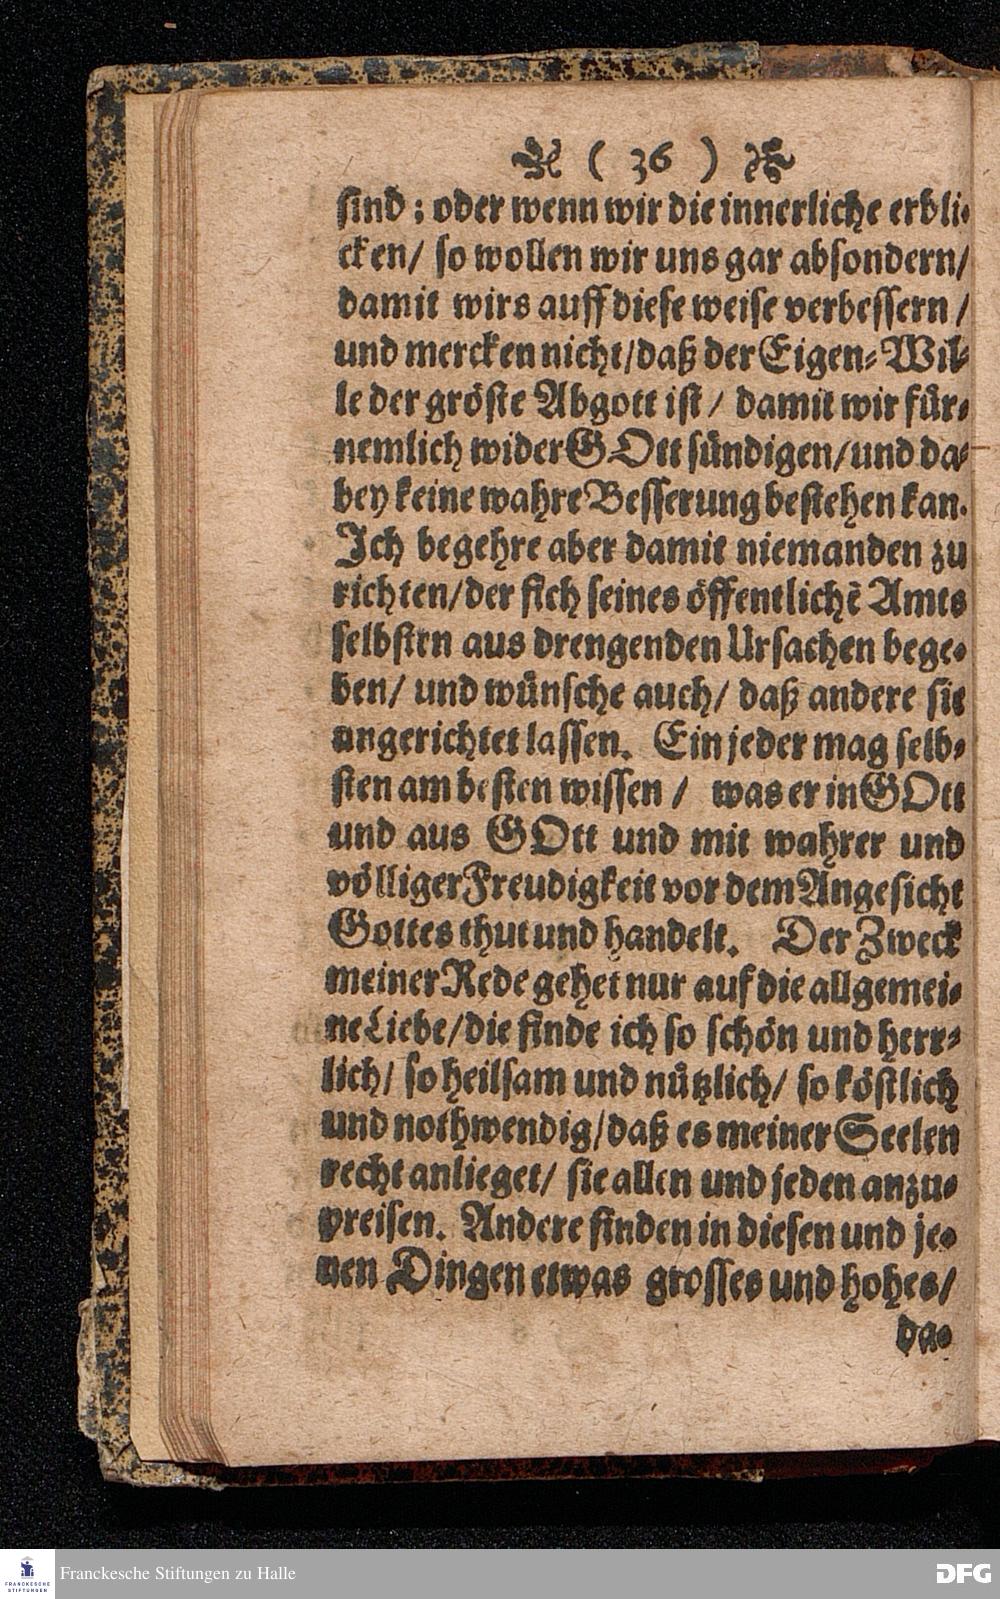 ( 36 )
sind; oder wenn wir die innerliche erbli-
cken/ so wollen wir uns gar absondern/
damit wirs auff diese weise verbessern /
und mercken nicht/daß der Eigen-Wil-
le der gröste Abgott ist/ damit wir für-
nemlich wider GOtt sündigen/und da-
bey keine wahre Besserung bestehen kan.
Ich begehre aber damit niemanden zu
richten/der sich seines öffentlichẽ Amts
selbstrn aus drengenden Ursachen bege-
ben/ und wünsche auch/ daß andere sie
ungerichtet lassen. Ein jeder mag selb-
sten am besten wissen / was er in GOtt
und aus GOtt und mit wahrer und
völliger Freudigkeit vor dem Angesicht
Gottes thut und handelt. Der Zweck
meiner Rede gehet nur auf die allgemei-
ne Liebe/die finde ich so schön und herr-
lich/ so heilsam und nützlich/ so köstlich
und nothwendig/daß es meiner Seelen
recht anlieget/ sie allen und jeden anzu-
preisen. Andere finden in diesen und je-
nen Dingen etwas grosses und hohes/
da-
FRANCKESCHE
STIFTUNGEN
Franckesche Stiftungen zu Halle
DFG